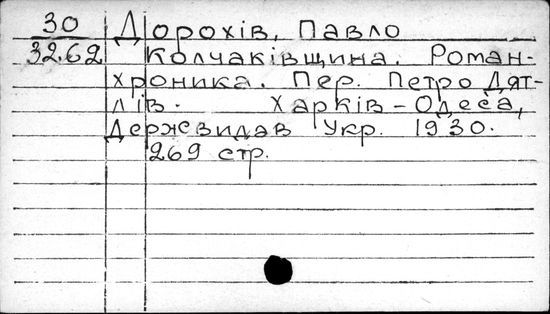 30 Дорохів, Павло
3262 Колчаківщина. Роман-
хроника. Пер. Петро Дят-
лів. Харків-Одеса,
Держвидав Укр. 1930.
269 стр.